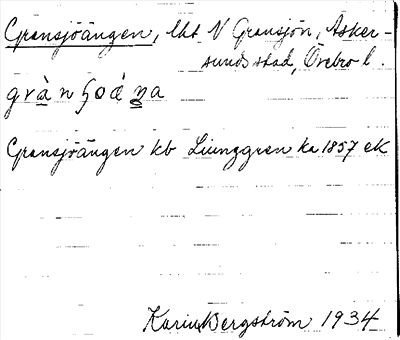 Gransjöängen, lht N Gransjön, Asker-
sunds stad, Örebro l.
grà̱n ʃoá ṉa
Gransjöängen kb Ljunggren ka 1857 ek
Karin Bergström 1934